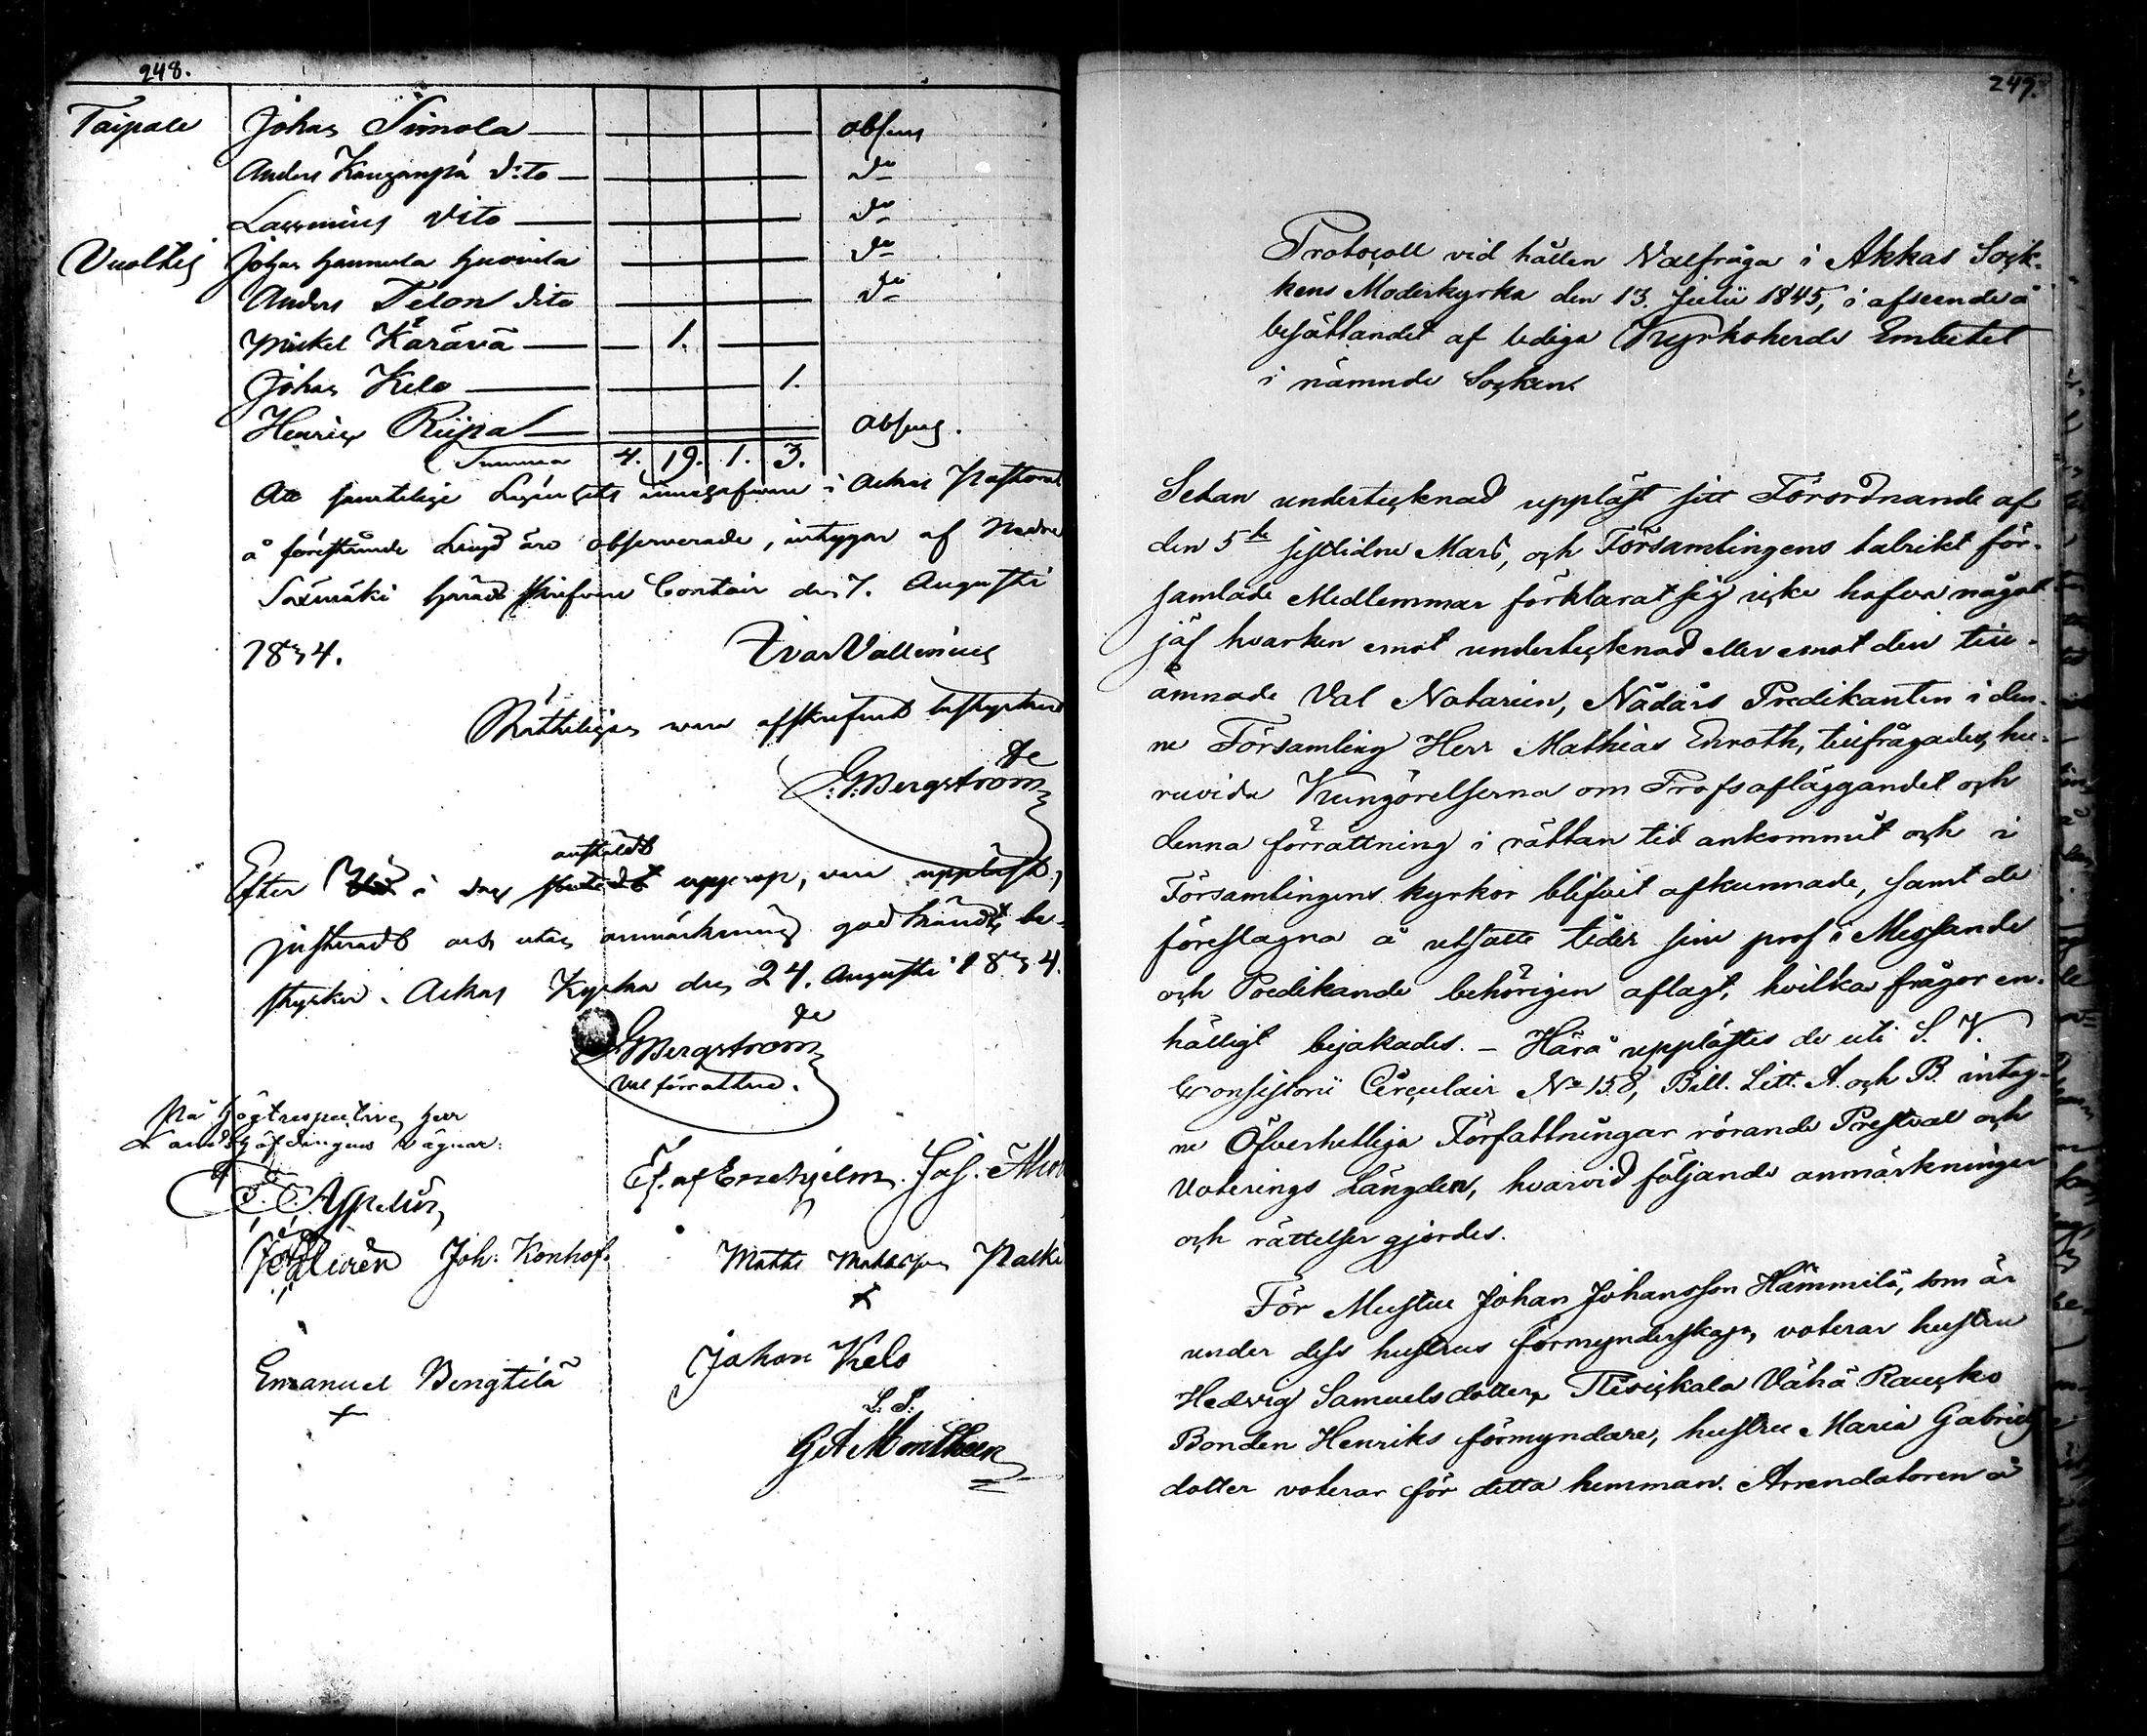 248.
Taipale Johan Simola — absens
Anders Kanganpä dito — do
Laurinius dito — do
Vuoltis Johan Hannula Huovila — do
Anders Pelon dito — do
Mickel Kärävä — 1.
Johan Kelo — 1.
Henric Riipa — absens.
Summa 4. 19. 1. 3.
Att samtelige innehafvare i Ackas Pastorat
å förestående Längd äro observerade, intygar af Nedre
Sääxmäki Härads skrifvare Contoir den 7. Augusti
1834. Ivar Vallenius
Rätteligen vara afskrifvit bestyrker
G. Bergström
Efter i dag anstäldt upprop, vara uppläst,
justeradt och utan anmärkning godkändt be-
styrker. Ackas Kyrka den 24. Augusti 1834.
G Bergström
Valförrättare.
På Högtrespective Herr
Landshöfdingens vägnar:
Aspelin
af Enehjelm. Joh.
Joh. Konhof. Matts Mattsson
x
Emanuel Bengtilä Johan Kelo
x
L. S.
G A Montheen
249.
Protocoll vid hållen Valfråga i Akkas Sock-
kens Moderkyrka den 13. Julii 1845, i afseende å
besättandet af lediga Kyrkoherde Embetet
i nämnde Socken.
Sedan undertecknad uppläst sitt Förordnande af
den 5te sistlidne Mars, och Församlingens talrikt för-
samlade Medlemmar förklarat sig icke hafva något
jäf hvarken emot undertecknad eller emot den till-
ämnade Val Notarien, Nådårs Predikanten i den-
ne Församling Herr Mathias Enroth, tillfrågades, hu-
ruvida Kungörelserna om Profsafläggandet och
denna förrättning i rättan tid ankommit och i
Församlingens kyrkor blifvit afkunnade, samt de
föreslagna å utsatte tider sine prof i Messande
och Predikande behörigen aflagt, hvilka frågor en-
hälligt bejakades. – Härå upplästes de uti S. V.
Consistorii Circulair No 158, Bill. Litt. A. och B. intag-
ne Öfverhetliga Författningar rörande Prestval och
Voterings Längden, hvarvid följande anmärkningar
och rättelser gjordes.
För Mustue Johan Johansson Hämmilä, som är
under dess hustrus förmynderskap, voterar hustru
Hedvig Samuelsdotter, Vähä Raucko
Bonden Henriks förmyndare, hustru Maria Gabriels
dotter voterar för detta hemman. Arrendatoren å